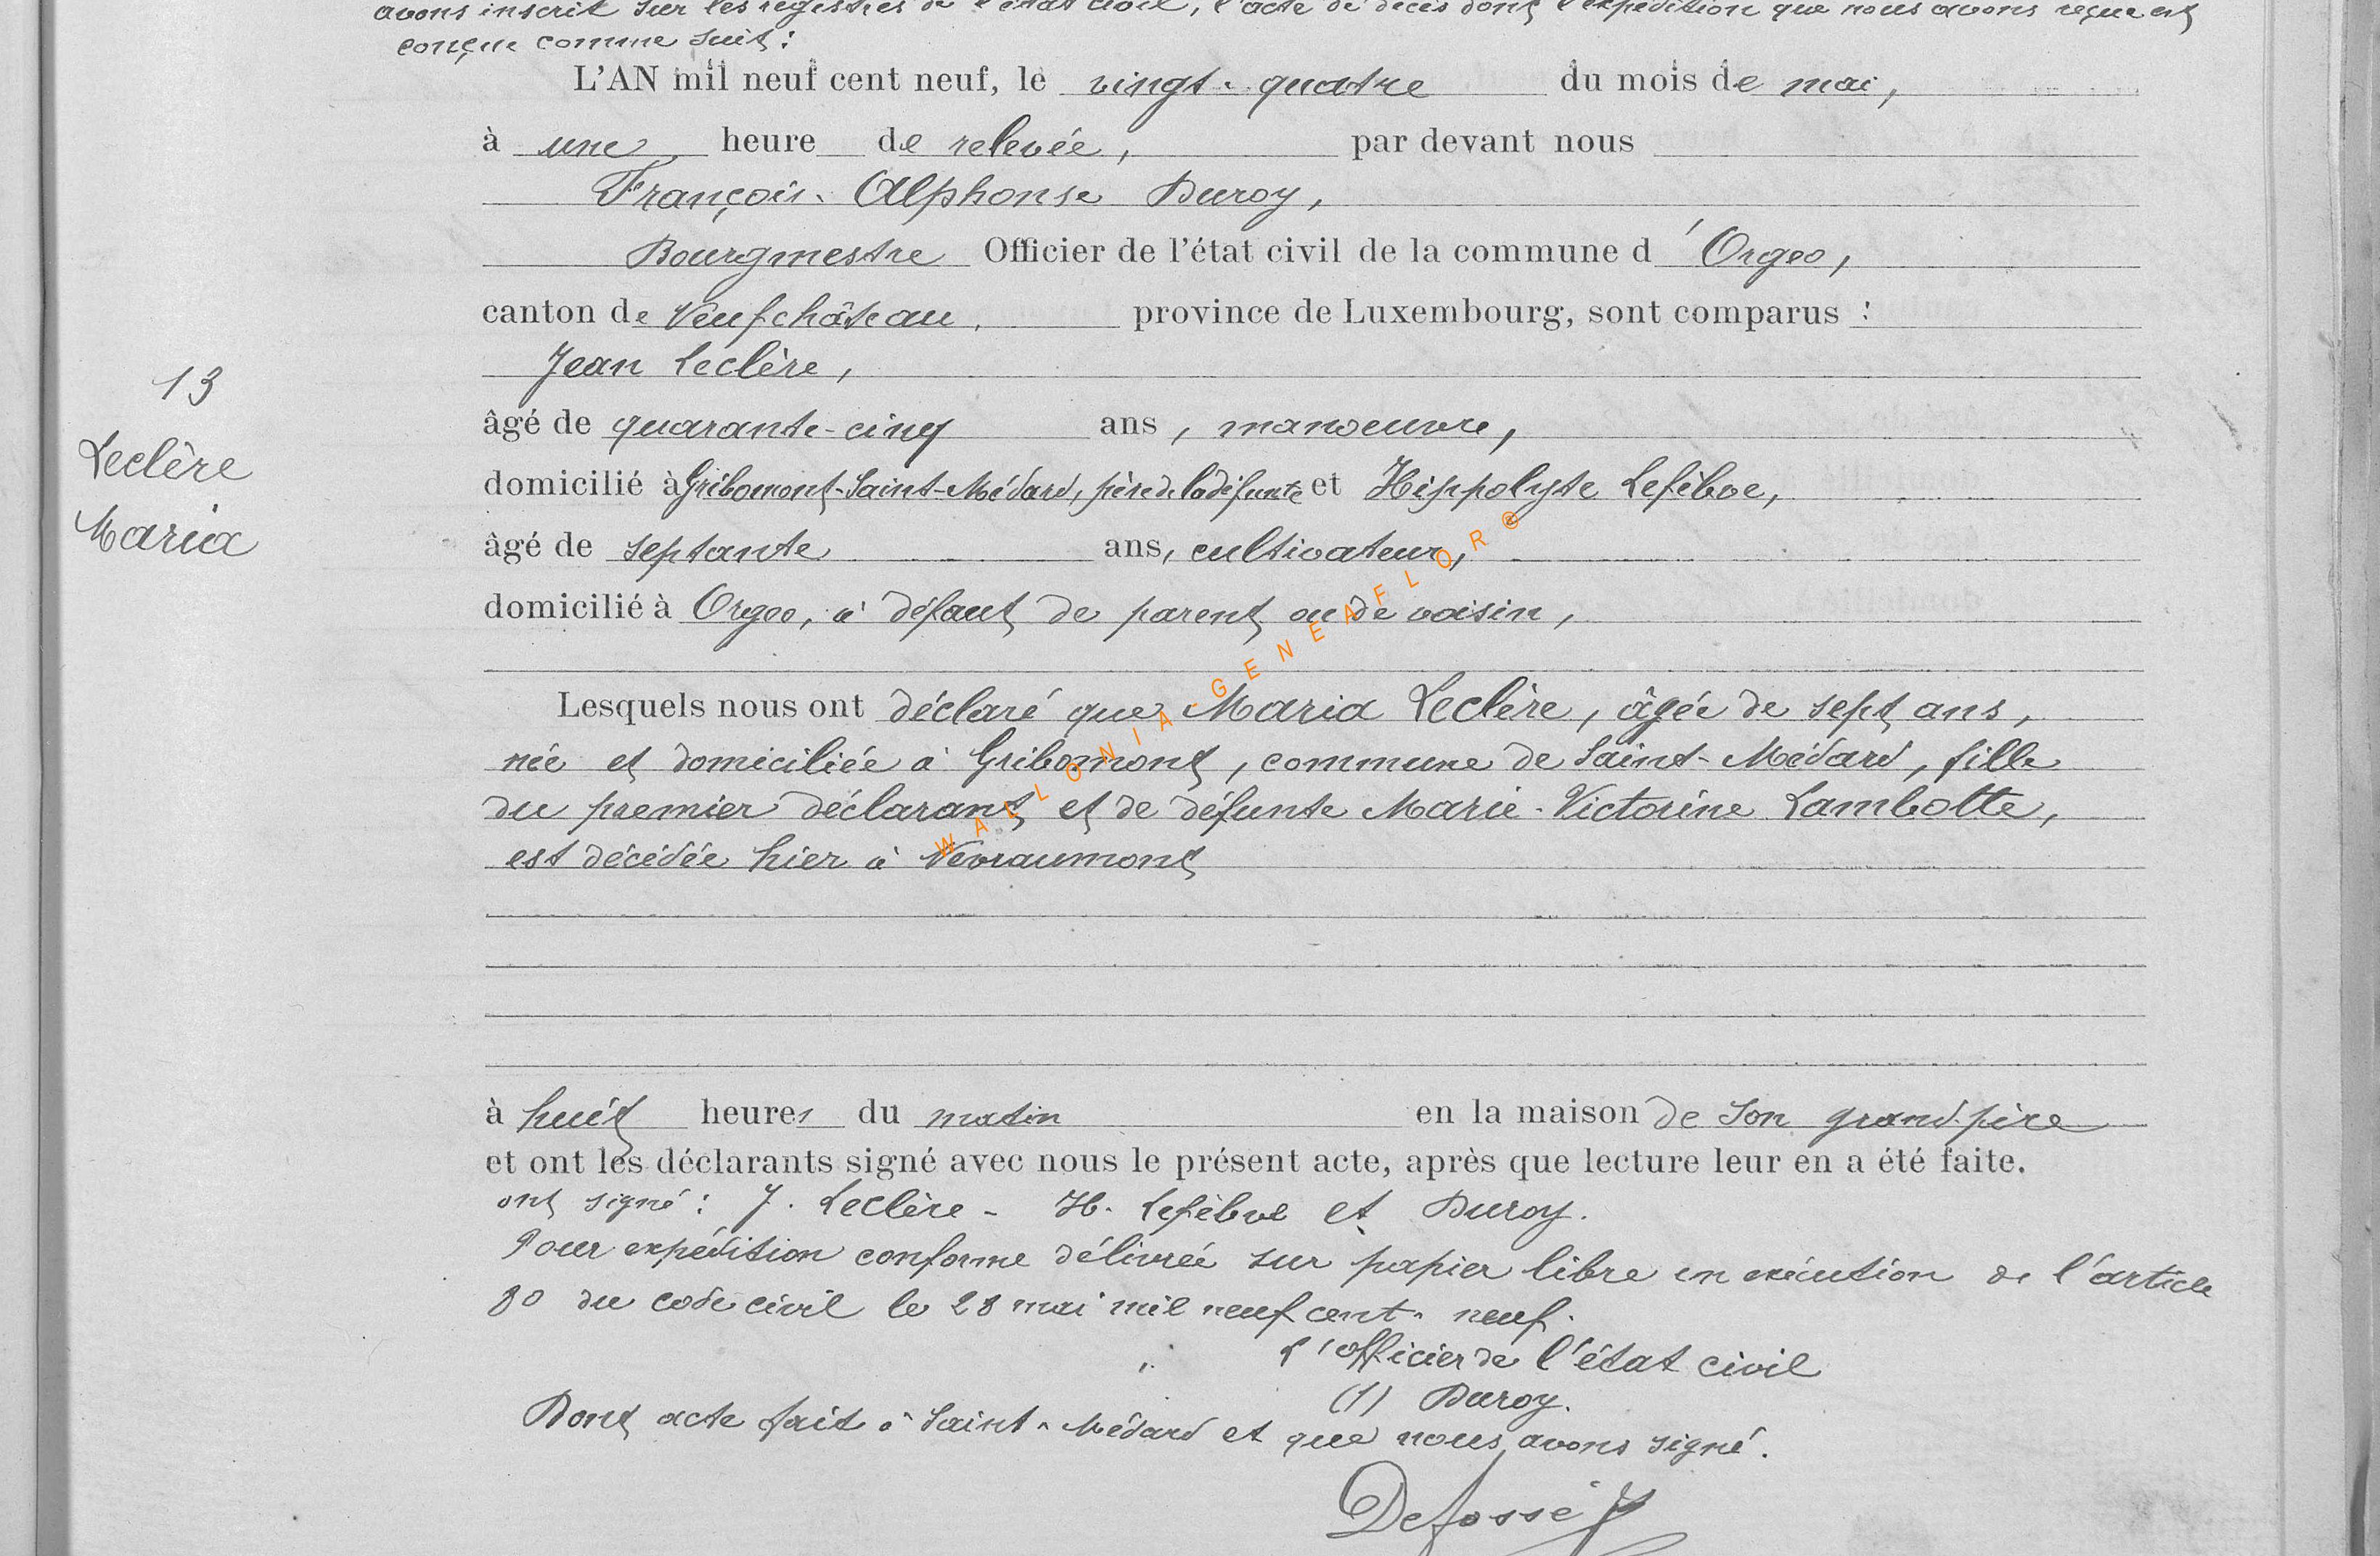 avons inscrit sur les registres de l'état civil, l'acte de décès dont l'expédition que nous avons reçue est
conçue comme suit :
L'AN mil neuf cent neuf, le vingt-quatre du mois de mai,
à une heure de relevée, par devant nous
François-Alphonse Duroy,
Bourgmestre Officier de l'état civil de la commune d'Orgeo,
canton de Neufchâteau, province de Luxembourg, sont comparus :
Jean Leclère,
13
âgé de quarante-cinq ans, manoeuvre,
Leclère
domicilié à Gribomont-Saint-Médard, père de la défunte et Hippolyte Lefèbve,
Maria
âgé de septante ans, cultivateur,
domicilié à Orgeo, à défaut de parent ou de voisin,
Lesquels nous ont déclaré que Maria Leclère, âgée de sept ans,
née et domiciliée à Gribomont, commune de Saint-Médard, fille
du premier déclarant et de défunte Marie-Victorine Lambotte,
est décédée hier à Nevraumont
à huit heures du matin en la maison de son grand-père
et ont les déclarants signé avec nous le présent acte, après que lecture leur en a été faite.
ont signé : J. Leclère - H. Lefèbve et Duroy.
Pour expédition conforme délivrée sur papier libre en exécution de l'article
80 du code civil le 28 mai mil neuf cent-neuf.
L'officier de l'état civil
(s) Duroy.
Dont acte fait à Saint-Médard et que nous avons signé.
Defossé
WALLONIA-GENEAFLOR®